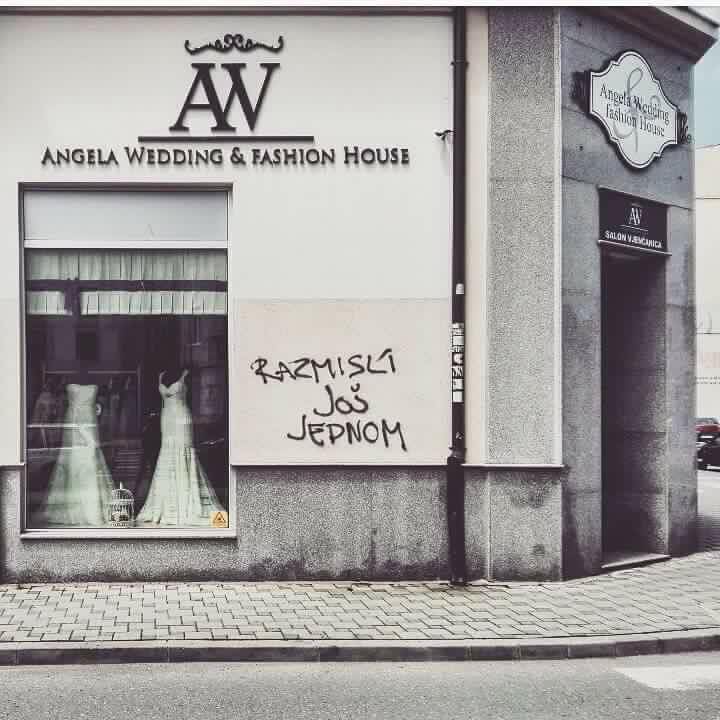 AW
ANGELA WEDDING & FASHION HOUSE
Angela Wedding
& fashion House
AW
SALON VJENČANICA
RAZMISLI
JOŠ
JEDNOM